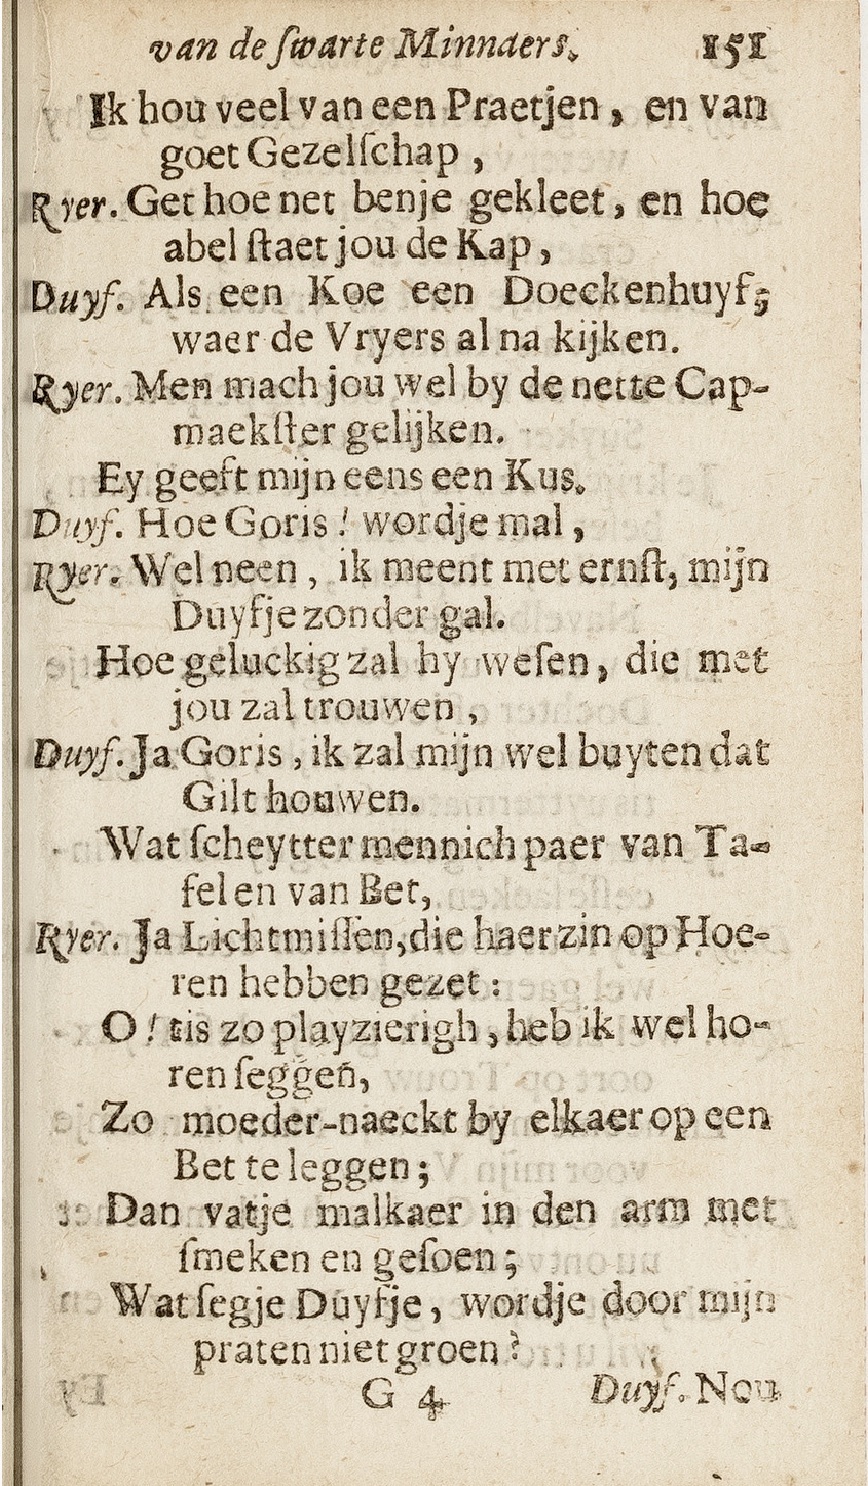 van de ſwarte Minnaers. 151
Ik hou veel van een Praetjen, en van
goet Gezelſchap,
Ryer. Get hoe net benje gekleet, en hoe
abel ſtaet jou de Kap,
Duyf. Als een Koe een Doeckenhuyf;
waer de Vryers al na kijken.
Ryer. Men mach jou wel by de nette Cap-
maekſter gelijken.
Ey geeft mijn eens een Kus.
Duyf. Hoe Goris! wordje mal,
Ryer. Wel neen, ik meent met ernſt, mijn
Duyfje zonder gal.
Hoe geluckig zal hy weſen, die met
jou zal trouwen,
Duyf. Ja Goris, ik zal mijn wel buyten dat
Gilt houwen.
Wat ſcheytter mennich paer van Ta-
fel en van Bet,
Ryer. Ja Lichtmiſſen, die haer zin op Hoe-
ren hebben gezet:
O! tis zo playzierigh, heb ik wel ho-
ren ſeggen,
Zo moeder-naeckt by elkaer op een
Bet te leggen;
Dan vatje malkaer in den arm met
ſmeken en geſoen;
Wat ſegje Duyfje, wordje door mijn
praten niet groen?
G 4 Duyf. Nou